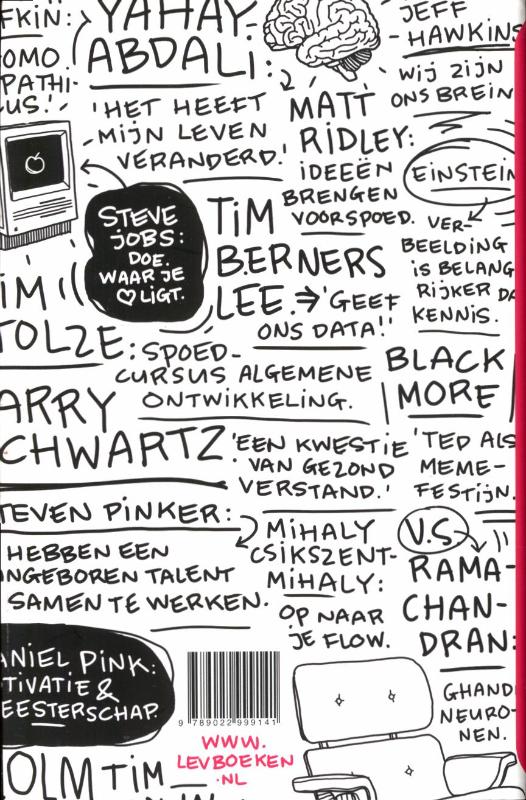 FKIN:
OMO
PATHI-
US!'
YAHAY
ABDALI:
'HET HEEFT
MIJN LEVEN
VERANDERD.'
JEFF
HAWKINS
WIJ ZIJN
ONS BREIN
MATT
RIDLEY:
IDEEËN
BRENGEN
VOORSPOED.
EINSTEIN
VER-
BEELDING
IS BELANG
RIJKER DA
KENNIS.
STEVE
JOBS:
DOE
WAAR JE
♡ LIGT.
TIM
BERNERS
LEE. → 'GEEF
ONS DATA!'
IM
TOLZE: SPOED-
CURSUS ALGEMENE
ONTWIKKELING.
BLACK
MORE
'TED ALS
MEME-
FESTIJN.
ARRY
CHWARTZ
'EEN KWESTIE
VAN GEZOND
VERSTAND.'
TEVEN PINKER:
HEBBEN EEN
NGEBOREN TALENT
SAMEN TE WERKEN.
MIHALY
CSIKSZENT-
MIHALY:
OP NAAR
JE FLOW.
V.S.
RAMA-
CHAN-
DRAN:
GHANDI
NEURO-
NEN.
ANIEL PINK:
TIVATIE &
EESTERSCHAP.
9 789022 999141
WWW.
LEVBOEKEN
.NL
OLM TIM